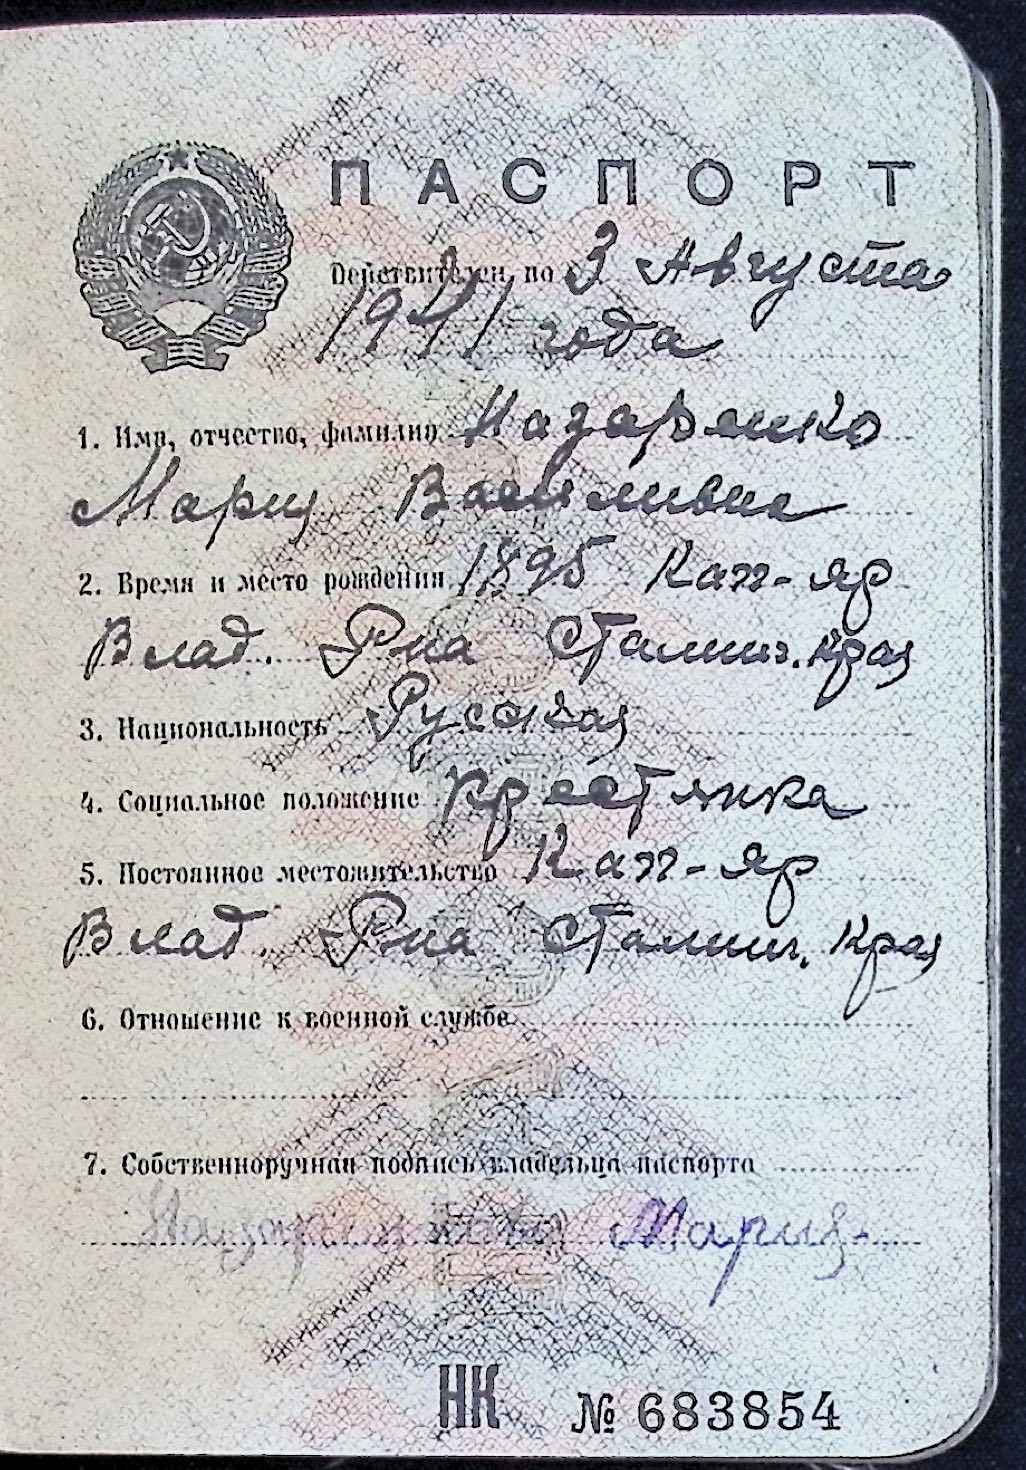 ПАСПОРТ
Действителен по 3 Августа
1941 года
1. Имя, отчество, фамилия Назаренко
Мария Василивна
2. Время и место рождения 1895 Кап-яр
Влад. Рна Сталинг. края
3. Национальность Русская
4. Социальное положение крестянка
5. Постоянное местожительство Кап-яр
Влад. Рна Сталинг. края
6. Отношение к военной службе
7. Собственноручная подпись владельца паспорта
Мария
НК № 683854